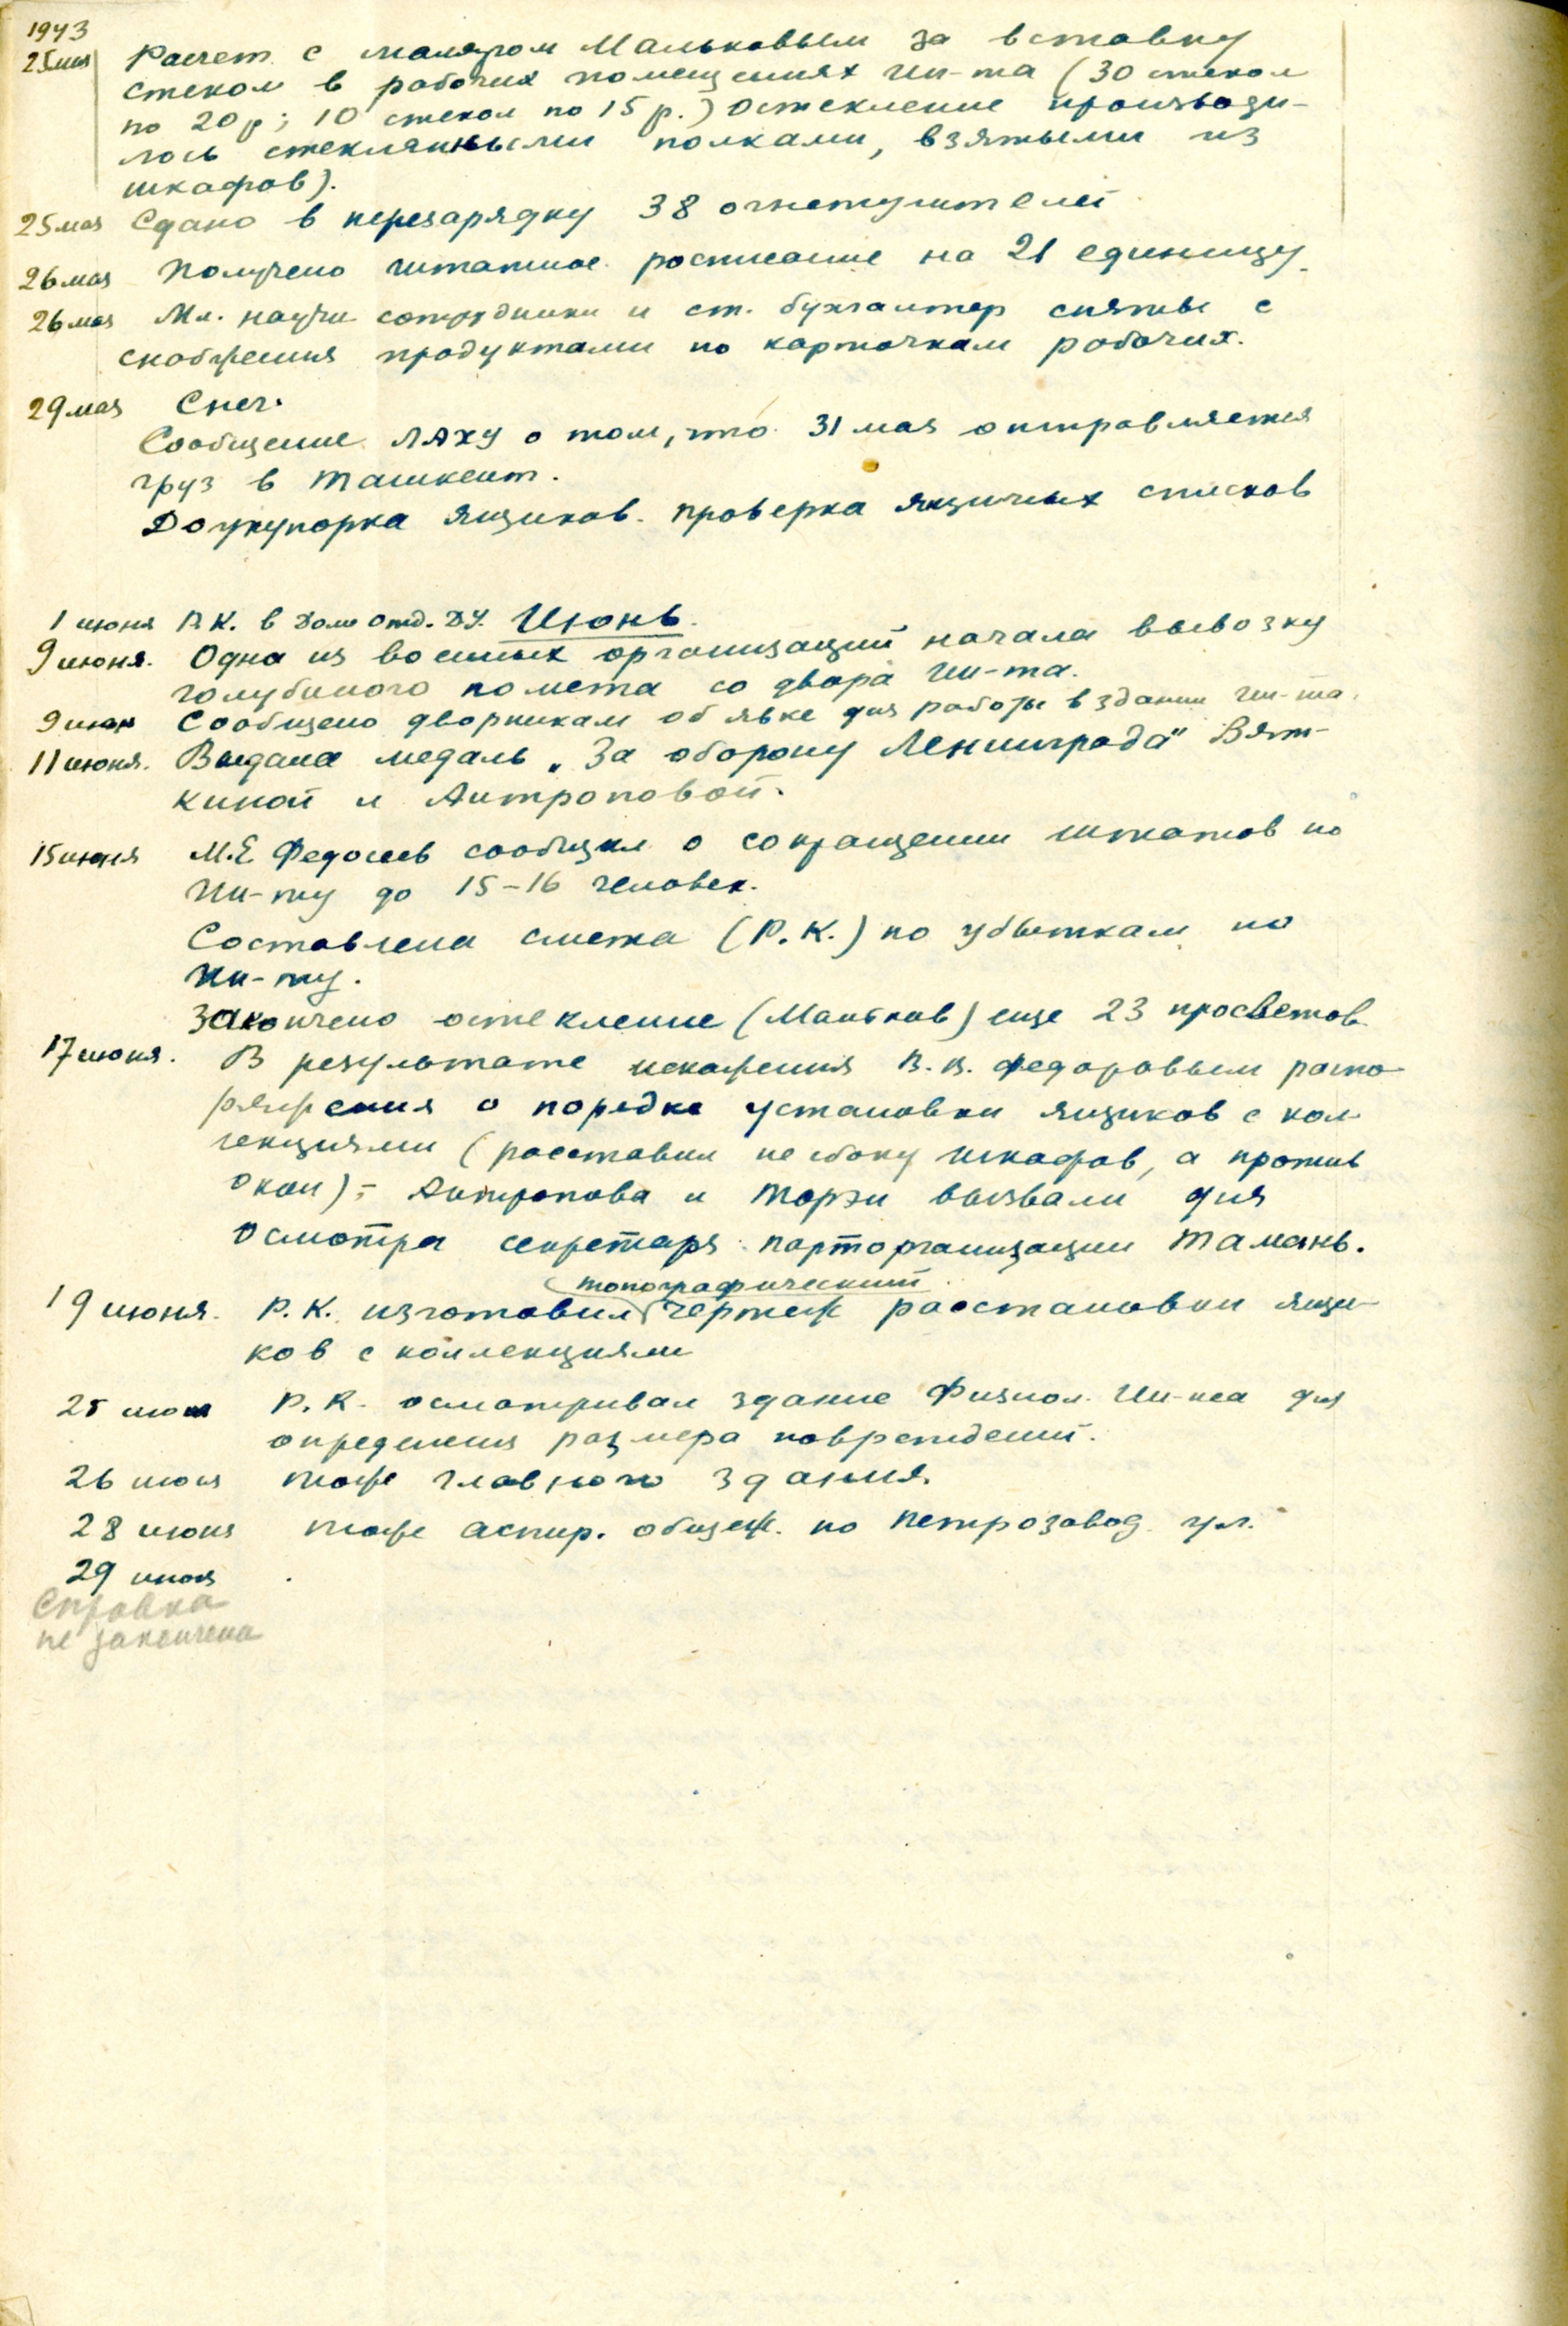 1943
25 мая Расчет с маляром Мальковым за вставку
стекол в рабочих помещениях Ин-та (30 стекол
по 20 р; 10 стекол по 15 р.) Остекление производи-
лось стеклянными полками, взятыми из
шкафов).
25 мая Сдано в перезарядку 38 огнетушителей
26 мая Получено штатное росписание на 21 единицу.
26 мая Мл. научн сотрудники и ст. бухгалтер сняты с
снабжения продуктами по карточкам рабочих.
29 мая Снег.
Сообщение ЛАХУ о том, что 31 мая отправляется
груз в Ташкент.
Доукупорка ящиков. Проверка ящичных списков
Июнь
1 июня Р.К. в Дом отд. ДУ.
9 июня. Одна из военных организаций начала вывозку
голубиного помета со двора Ин-та.
9 июня Сообщено дворникам об явке для работы в здании Ин-та.
11 июня. Выдана медаль „За оборону Ленинграда" Вят-
киной и Антроповой.
15 июня М.Е. Федосеев сообщил о сокращении штатов по
Ин-ту до 15-16 человек.
Составлена смета (Р.К.) по убыткам по
Ин-ту.
Закончено остекление (Мальков) еще 23 просветов.
17 июня. В результате искажения В.В. Федоровым распо-
ряжения о порядке установки ящиков с кол-
лекциями (расставил не сбоку шкафов, а против
окон) - Антропова и Торэн вызвали для
осмотра секретаря парторганизации Тамань.
топографический
19 июня. Р.К. изготовил чертеж расстановки ящи-
ков с коллекциями
25 июня Р.К. осматривал здание Физиол. Ин-та для
определения размера повреждений.
26 июня тоже главного здания.
28 июня тоже аспир. общеж. по Петрозавод. ул.
29 июня .
Справка
не закончена